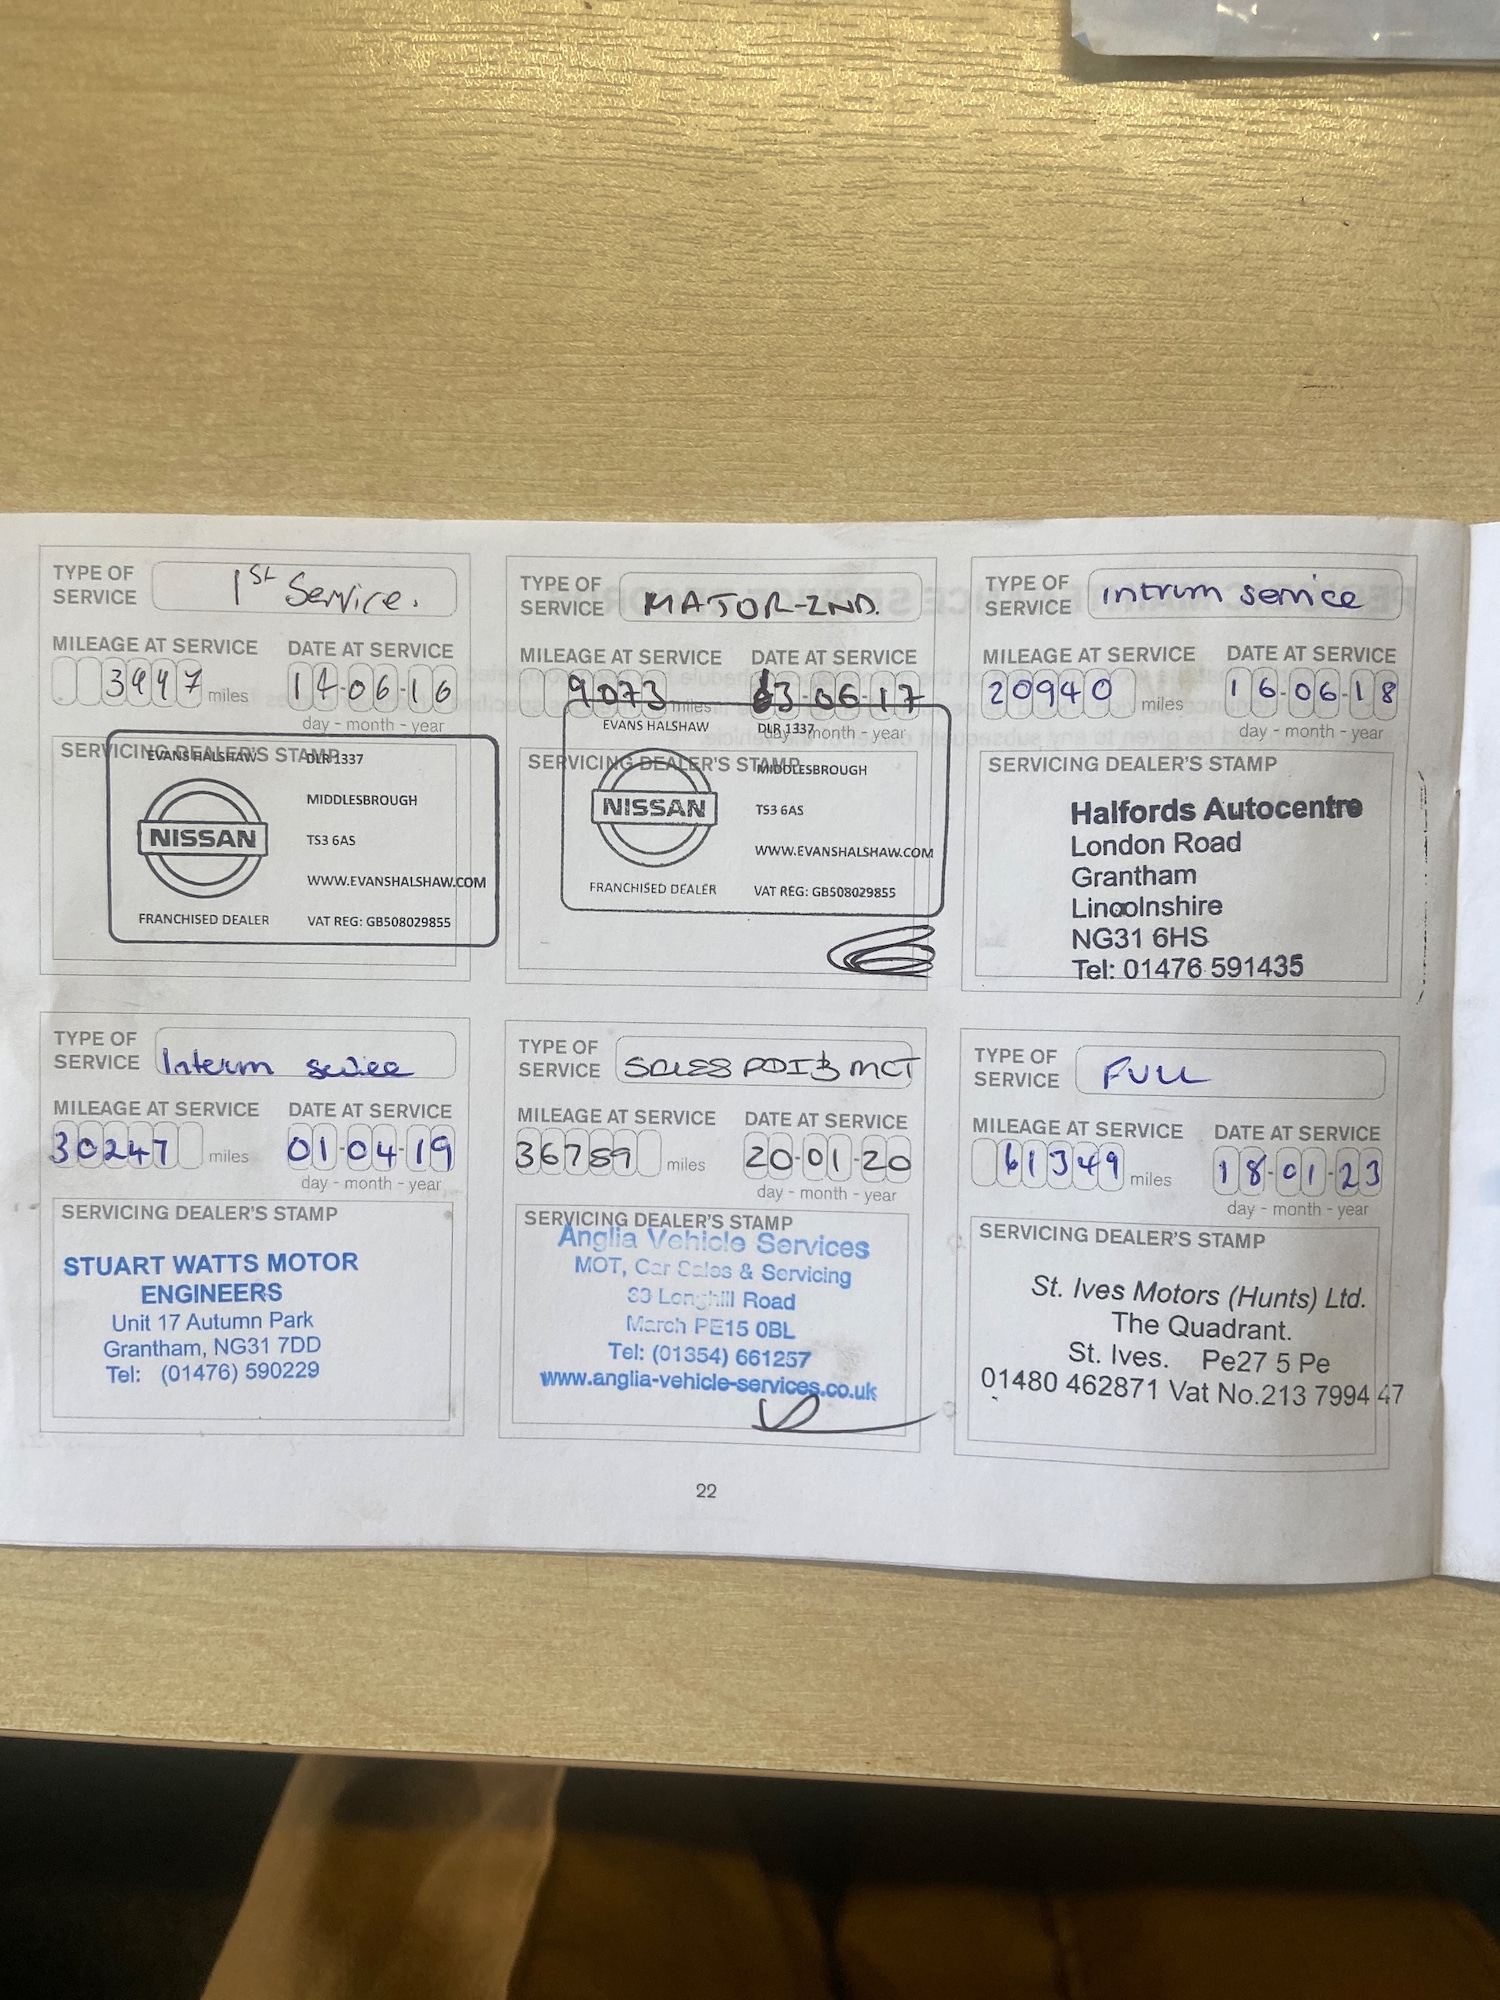 TYPE OF SERVICE 1st Service.
MILEAGE AT SERVICE DATE AT SERVICE
3997 miles 14-06-16
day - month - year
SERVICING DEALER'S STAMP
EVANS HALSHAW DLR 1337
MIDDLESBROUGH
NISSAN
TS3 6AS
WWW.EVANSHALSHAW.COM
FRANCHISED DEALER VAT REG: GB508029855
TYPE OF SERVICE MAJOR-2ND.
MILEAGE AT SERVICE DATE AT SERVICE
9073 miles 13-06-17
day - month - year
SERVICING DEALER'S STAMP
EVANS HALSHAW DLR 1337
MIDDLESBROUGH
NISSAN
TS3 6AS
WWW.EVANSHALSHAW.COM
FRANCHISED DEALER VAT REG: GB508029855
TYPE OF SERVICE intrum service
MILEAGE AT SERVICE DATE AT SERVICE
20940 miles 16-06-18
day - month - year
SERVICING DEALER'S STAMP
Halfords Autocentre
London Road
Grantham
Lincolnshire
NG31 6HS
Tel: 01476 591435
TYPE OF SERVICE Interm service
MILEAGE AT SERVICE DATE AT SERVICE
30247 miles 01-04-19
day - month - year
SERVICING DEALER'S STAMP
STUART WATTS MOTOR
ENGINEERS
Unit 17 Autumn Park
Grantham, NG31 7DD
Tel: (01476) 590229
TYPE OF SERVICE SALES PDI & MOT
MILEAGE AT SERVICE DATE AT SERVICE
36789 miles 20-01-20
day - month - year
SERVICING DEALER'S STAMP
Anglia Vehicle Services
MOT, Car Sales & Servicing
Longhill Road
March PE15 0BL
Tel: (01354) 661257
www.anglia-vehicle-services.co.uk
TYPE OF SERVICE FULL
MILEAGE AT SERVICE DATE AT SERVICE
61349 miles 18-01-23
day - month - year
SERVICING DEALER'S STAMP
St. Ives Motors (Hunts) Ltd.
The Quadrant.
St. Ives. Pe27 5 Pe
01480 462871 Vat No.213 7994 47
22